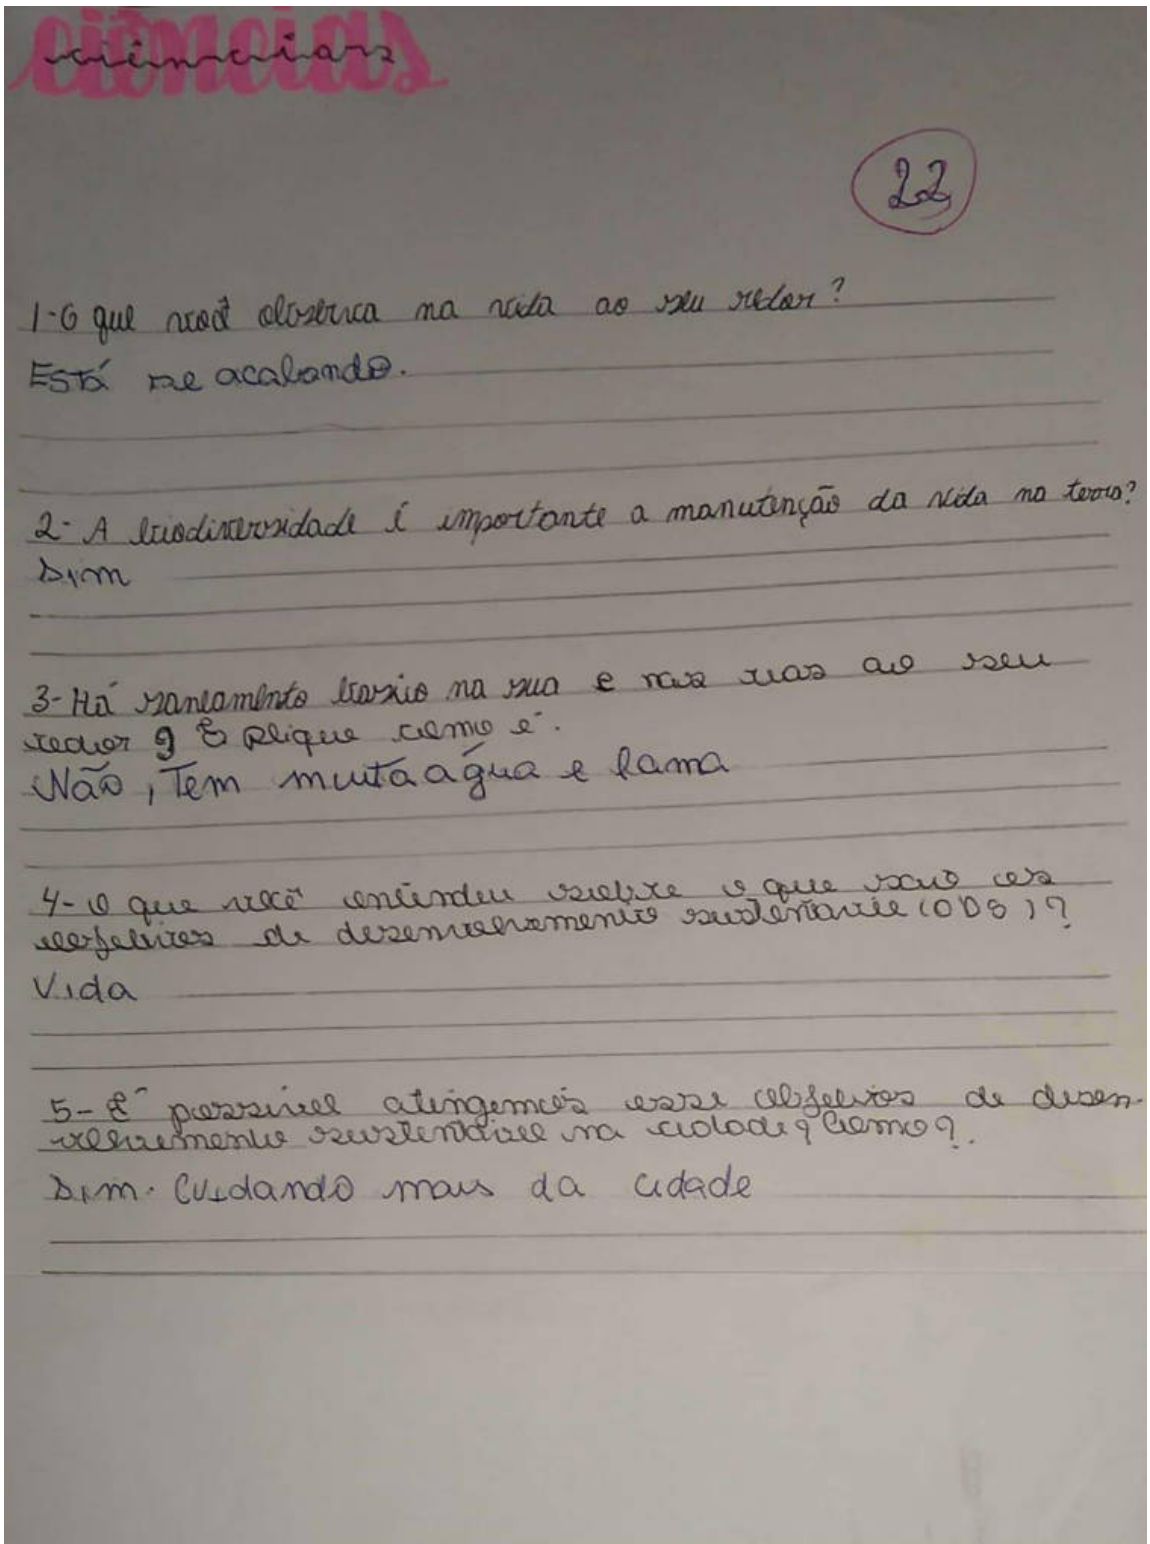 ciências
22
1-O que você observa na vida ao seu redor?
Está se acabando.
2- A biodiversidade é importante a manutenção da vida na terra?
Sim
3-Há saneamento basico na sua e nas ruas ao seu
redor? Explique como é.
Não, Tem muita água e lama
4-O que você entendeu sobre o que são os
objetivos de desenvolvimento sustentavel (ODS)?
Vida
5-É possivel atingemos esse objetivos de desen-
volvimento sustentavel na cidade? Como?.
Sim. Cuidando mais da cidade